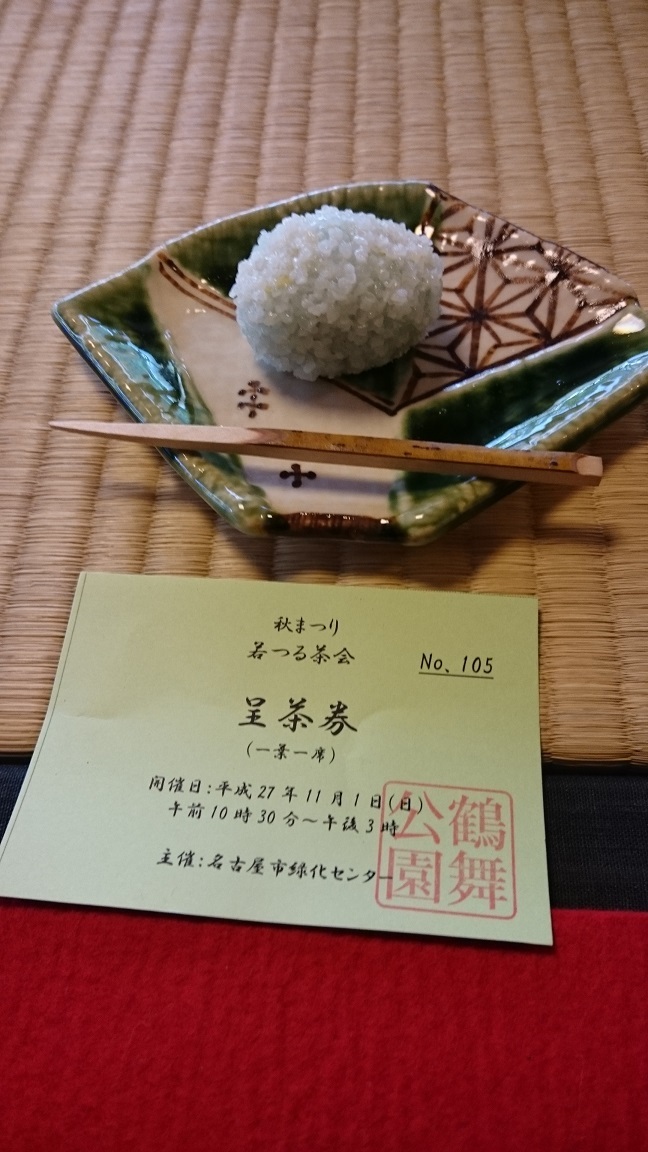 秋まつり
若つる茶会
No、105
呈茶券
(一葉一席)
開催日:平成27年11月1日(日)
午前10時30分～午後3時
主催:名古屋市緑化センター
鶴舞
公園